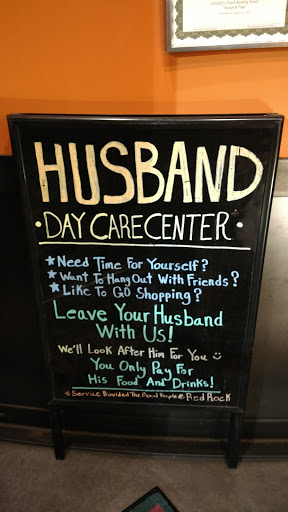 HUSBAND
• DAY CARE CENTER •
★ Need Time For Yourself?
★ Want To Hang Out With Friends?
★ Like To Go Shopping?
Leave Your Husband
With Us!
We'll Look After Him For You ☺
You Only Pay For
His Food And Drinks!
Service Provided The Good People @ Red Rock